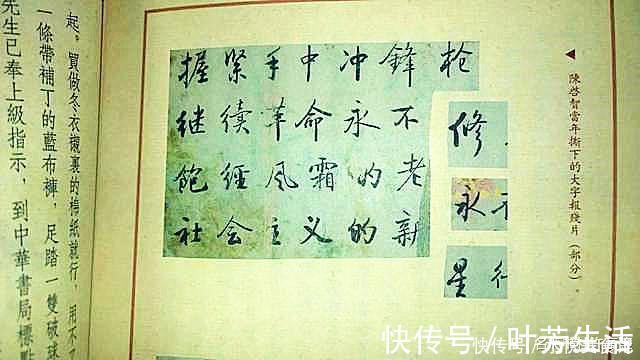 陳啓智當年撕下的大字報殘片（部分）。
握緊手中冲鋒枪
继續革命永不
飽經风霜的老
社会主义的新
修
永
星
起。買做冬衣襯裏的棉紙就行，用不
一條帶補丁的藍布褲，足踏一雙破球
先生已奉上級指示，到中華書局標點
快传号／叶芳生活
快传号／